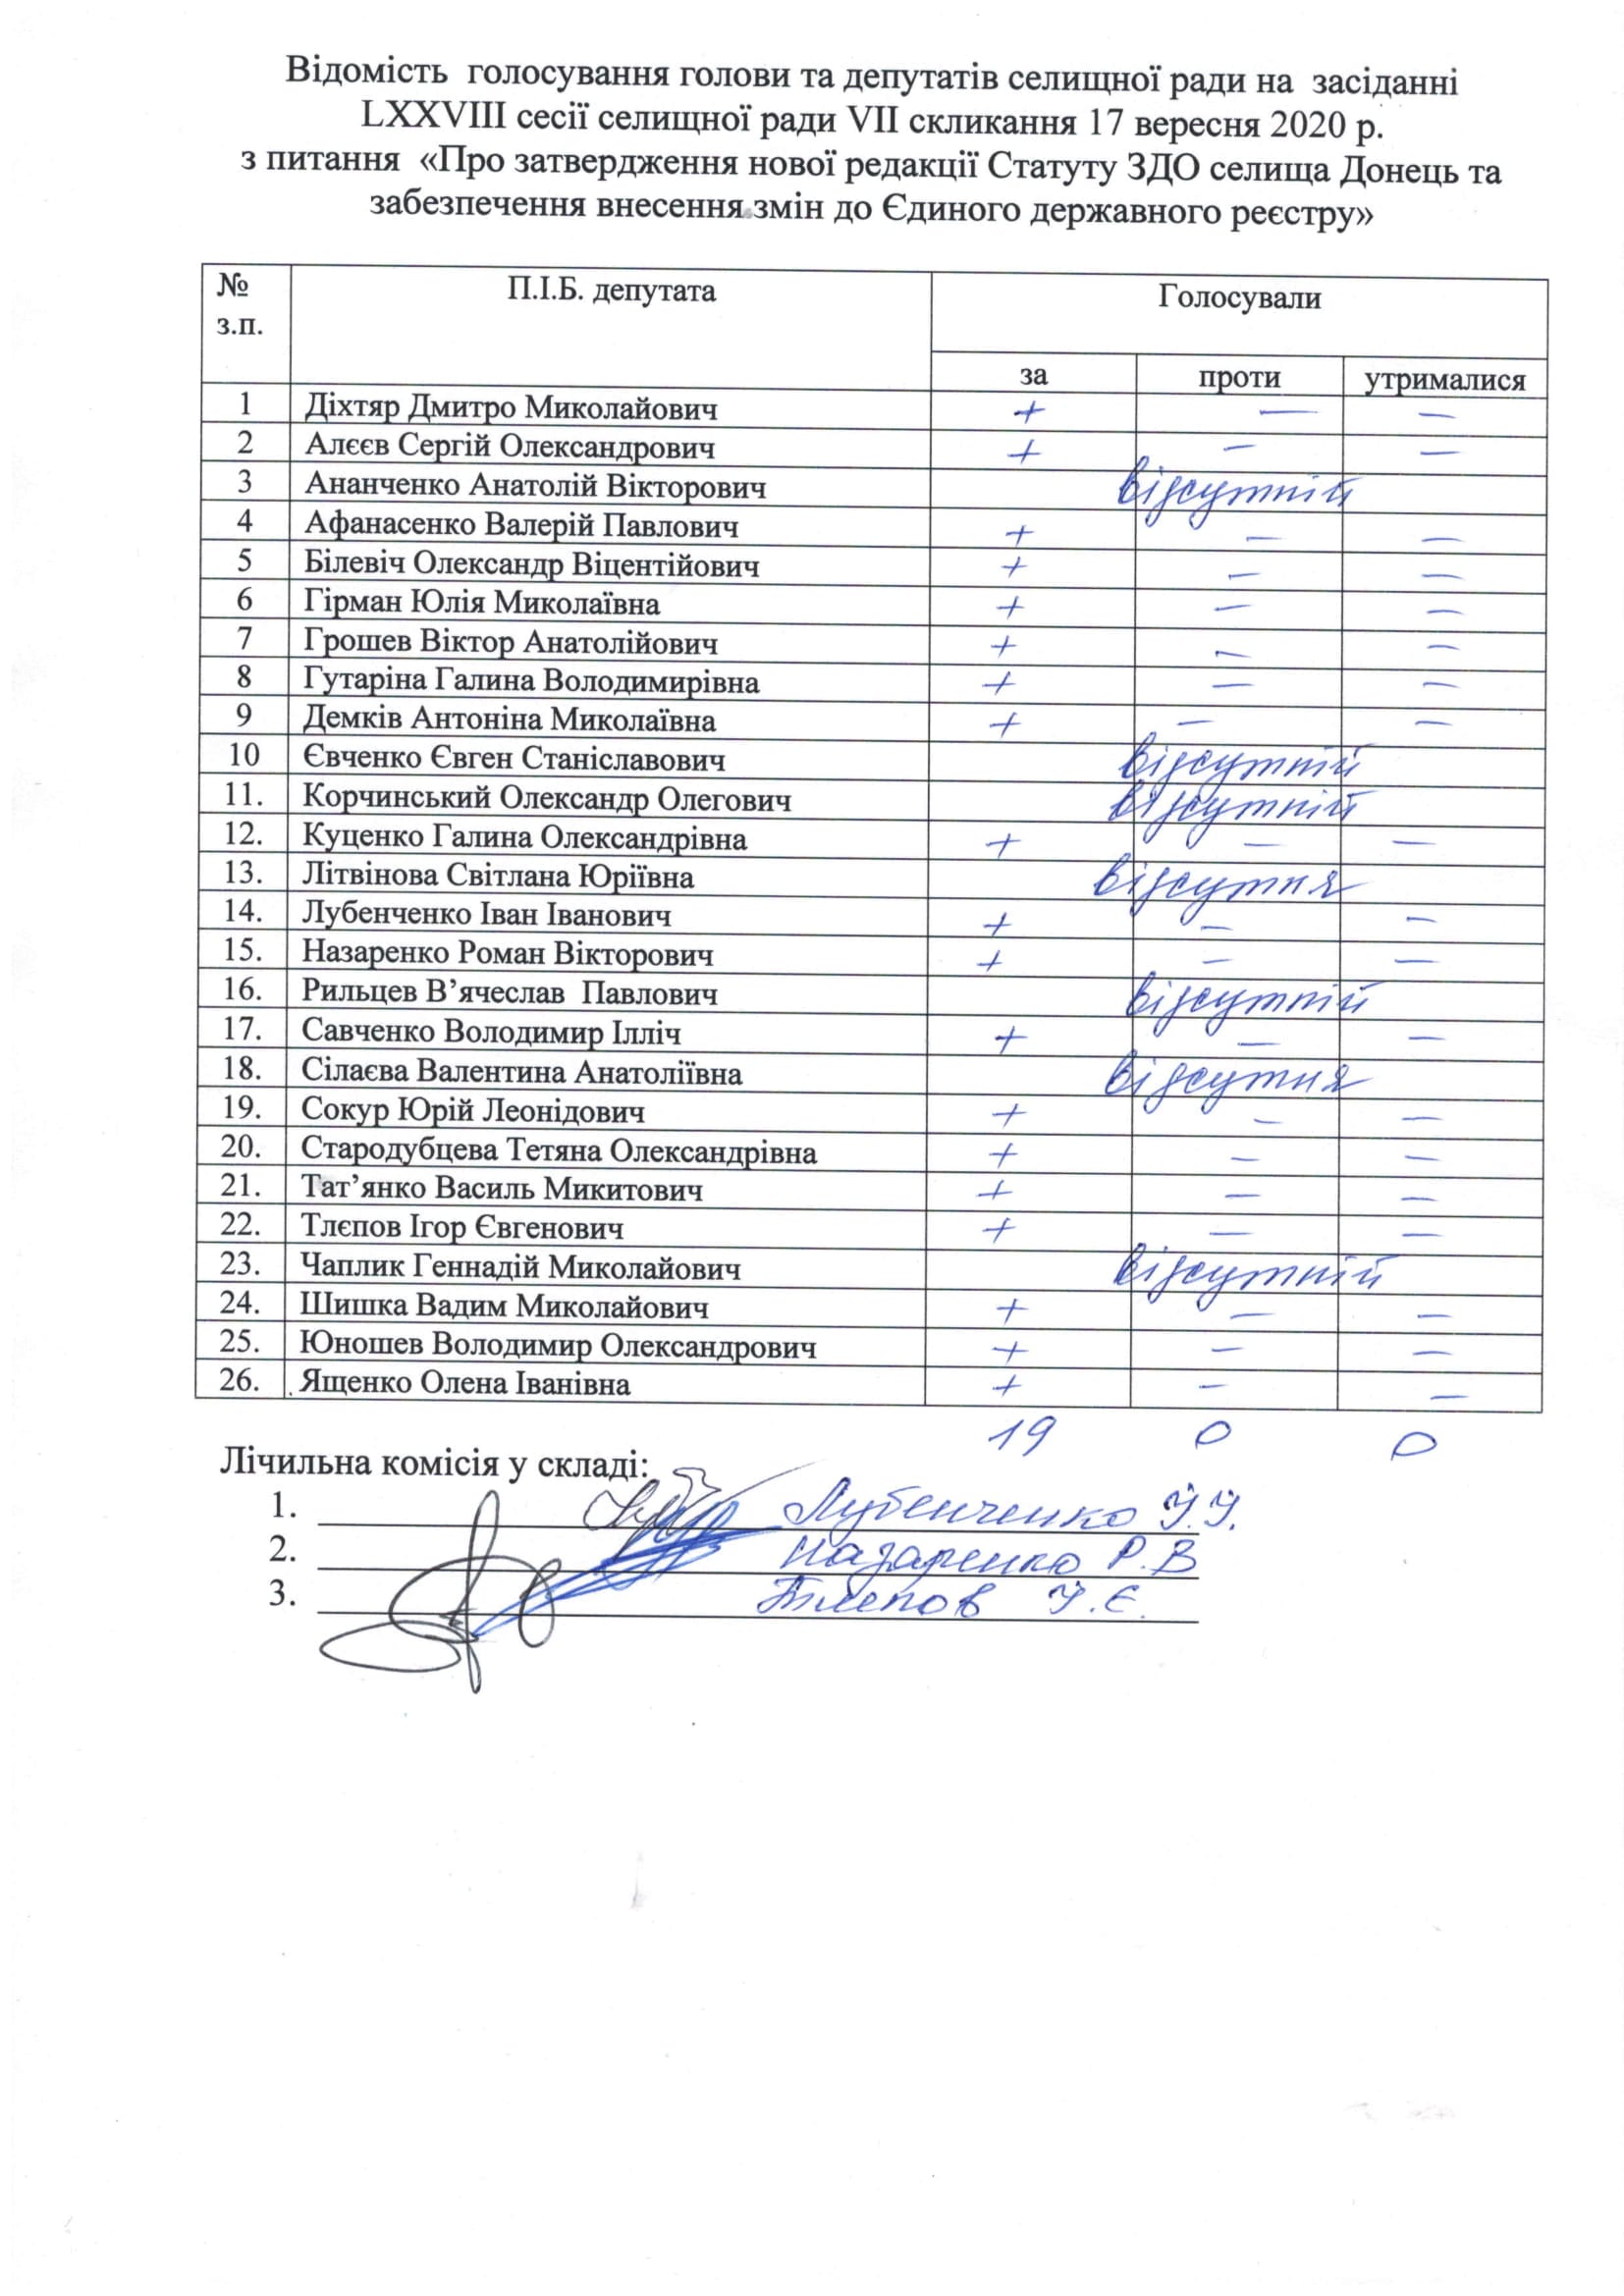 Відомість голосування голови та депутатів селищної ради на засіданні
LXXVIII сесії селищної ради VII скликання 17 вересня 2020 р.
з питання «Про затвердження нової редакції Статуту ЗДО селища Донець та
забезпечення внесення змін до Єдиного державного реєстру»
№ з.п. П.І.Б. депутата Голосували
за проти утрималися
1 Діхтяр Дмитро Миколайович + — —
2 Алєєв Сергій Олександрович + — —
3 Ананченко Анатолій Вікторович відсутній
4 Афанасенко Валерій Павлович + — —
5 Білевіч Олександр Віцентійович + — —
6 Гірман Юлія Миколаївна + — —
7 Грошев Віктор Анатолійович + — —
8 Гутаріна Галина Володимирівна + — —
9 Демків Антоніна Миколаївна + — —
10 Євченко Євген Станіславович відсутній
11. Корчинський Олександр Олегович відсутній
12. Куценко Галина Олександрівна + — —
13. Літвінова Світлана Юріївна відсутня
14. Лубенченко Іван Іванович + — —
15. Назаренко Роман Вікторович + — —
16. Рильцев В’ячеслав Павлович відсутній
17. Савченко Володимир Ілліч + — —
18. Сілаєва Валентина Анатоліївна відсутня
19. Сокур Юрій Леонідович + — —
20. Стародубцева Тетяна Олександрівна + — —
21. Тат’янко Василь Микитович + — —
22. Тлєпов Ігор Євгенович + — —
23. Чаплик Геннадій Миколайович відсутній
24. Шишка Вадим Миколайович + — —
25. Юношев Володимир Олександрович + — —
26. Ященко Олена Іванівна + — —
19 0 0
Лічильна комісія у складі:
1. Лубенченко І.І.
2. Назаренко Р.В
3. Тлепов І.Є.